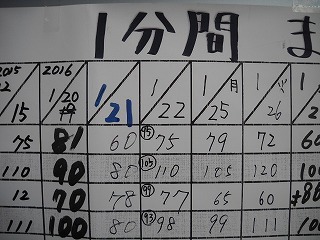 1分間 ま
2015 2016 1/21 1/22 1/25 月 1/26 火
12/15 1/20
75 81 60 95 75 79 72 60
110 90 80 105 110 105 120 100
12 70 78 99 77 65 60
111 100 80 93 98 99 111 100